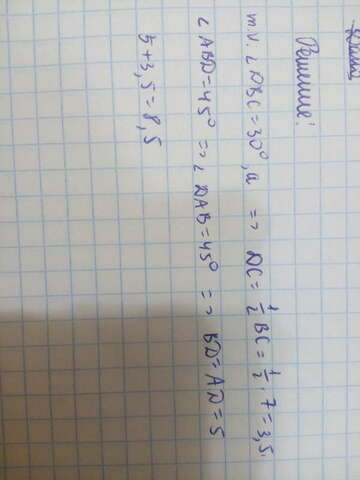 Решение:
т.к. ∠DBC=30°, а => DC=½BC=½·7=3,5
∠ABD=45° => ∠DAB=45° => BD=AD=5
5+3,5=8,5